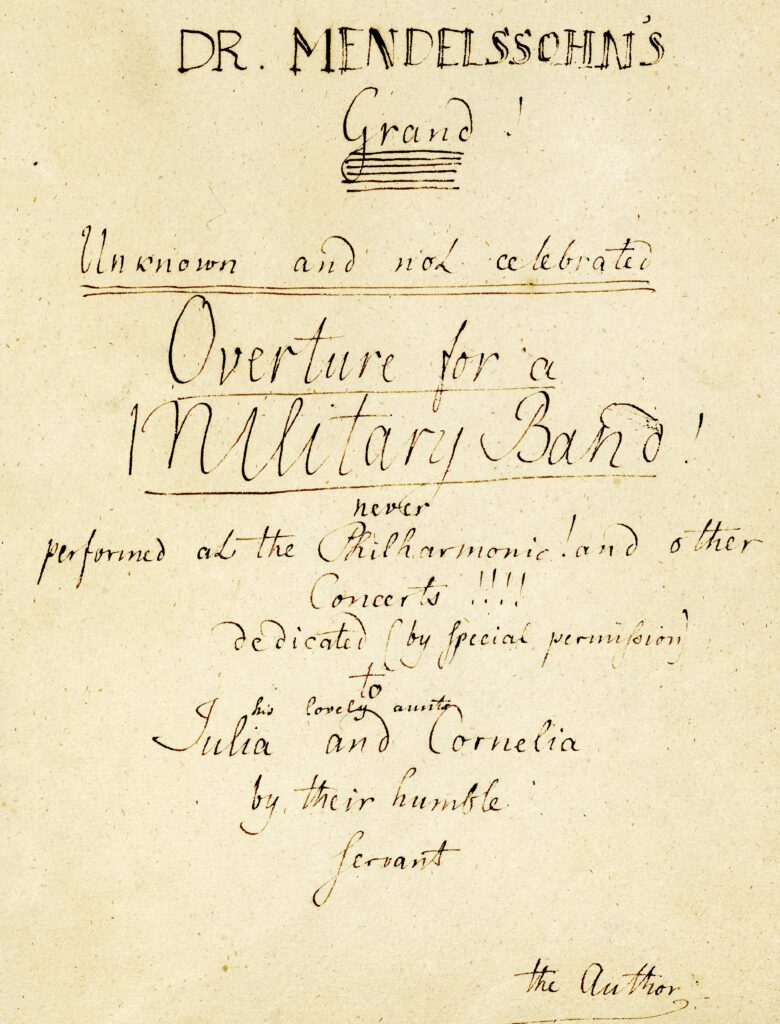 DR. MENDELSSOHN'S
Grand!
Unknown and not celebrated
Overture for a
Military Band!
never
performed at the Philharmonic! and other
Concerts !!!!
dedicated (by special permission)
to
his lovely aunts
Julia and Cornelia
by their humble
servant
the Author.